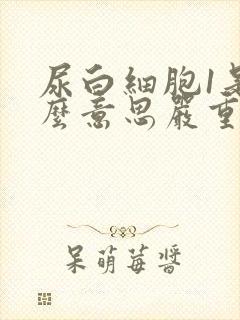 尿白細胞1是
麼意思嚴重
呆萌莓醬